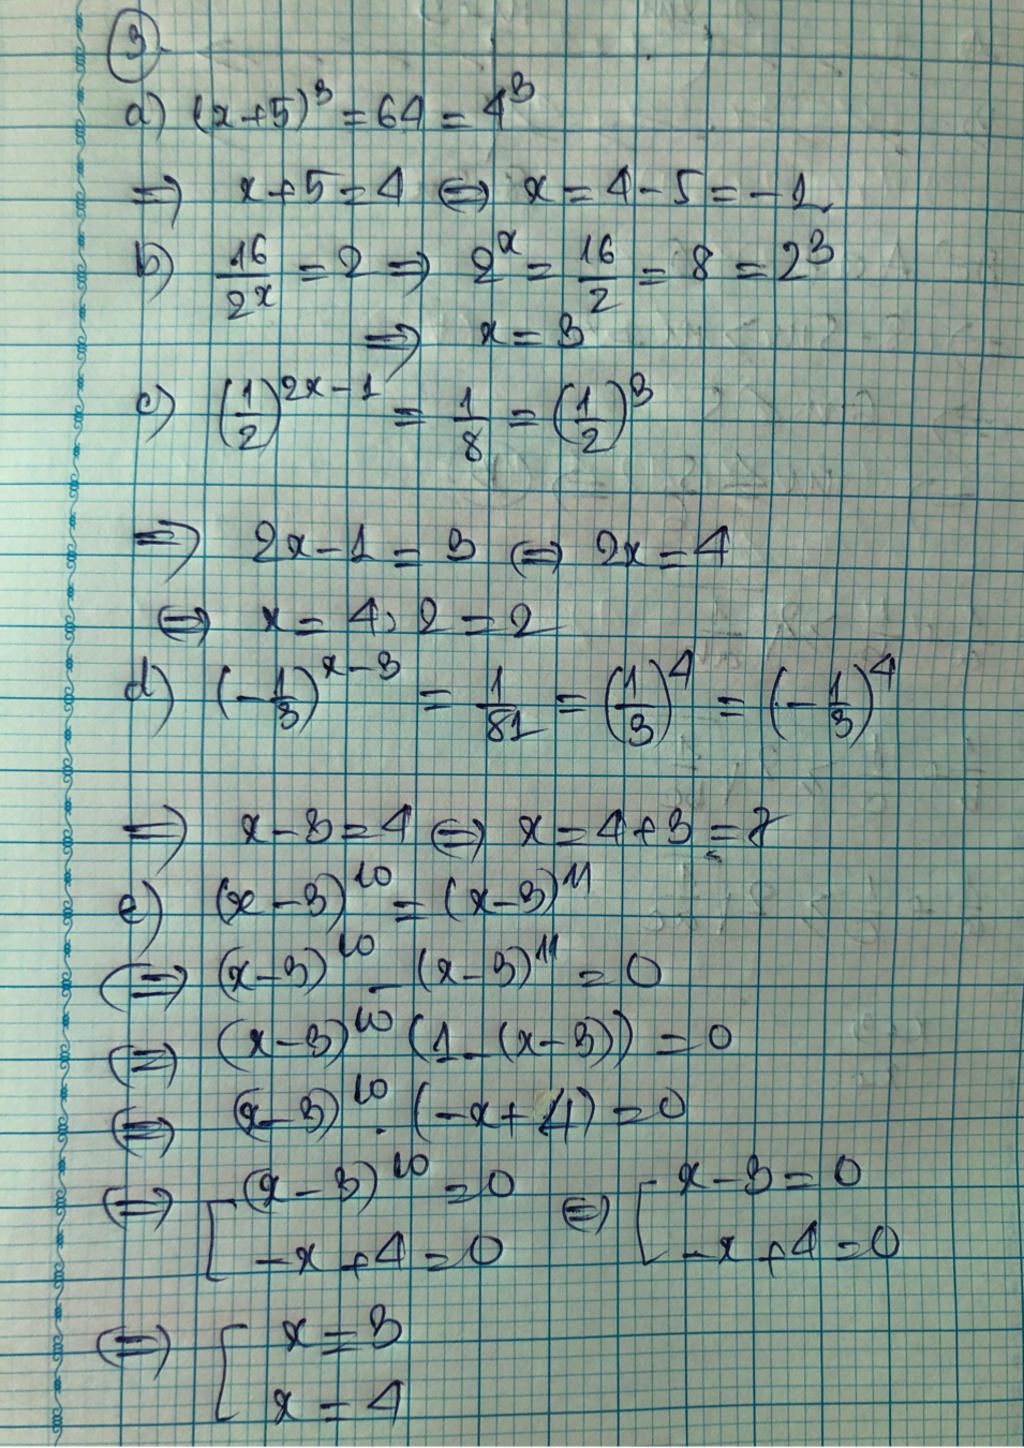 3
a) (x+5)³ = 64 = 4³
=> x+5 = 4 <=> x = 4-5 = -1
b) 16/2ˣ = 2 => 2ˣ = 16/2 = 8 = 2³
=> x = 3
c) (1/2)^(2x-1) = 1/8 = (1/2)³
=> 2x-1 = 3 <=> 2x = 4
<=> x = 4:2 = 2
d) (-1/3)^(x-3) = 1/81 = (1/3)⁴ = (-1/3)⁴
=> x-3 = 4 <=> x = 4+3 = 7
e) (x-3)¹⁰ = (x-3)¹¹
<=> (x-3)¹⁰ - (x-3)¹¹ = 0
<=> (x-3)¹⁰ (1-(x-3)) = 0
<=> (x-3)¹⁰ . (-x+4) = 0
<=> [ (x-3)¹⁰ = 0 <=> [ x-3 = 0
-x+4 = 0 -x+4 = 0
<=> [ x = 3
x = 4